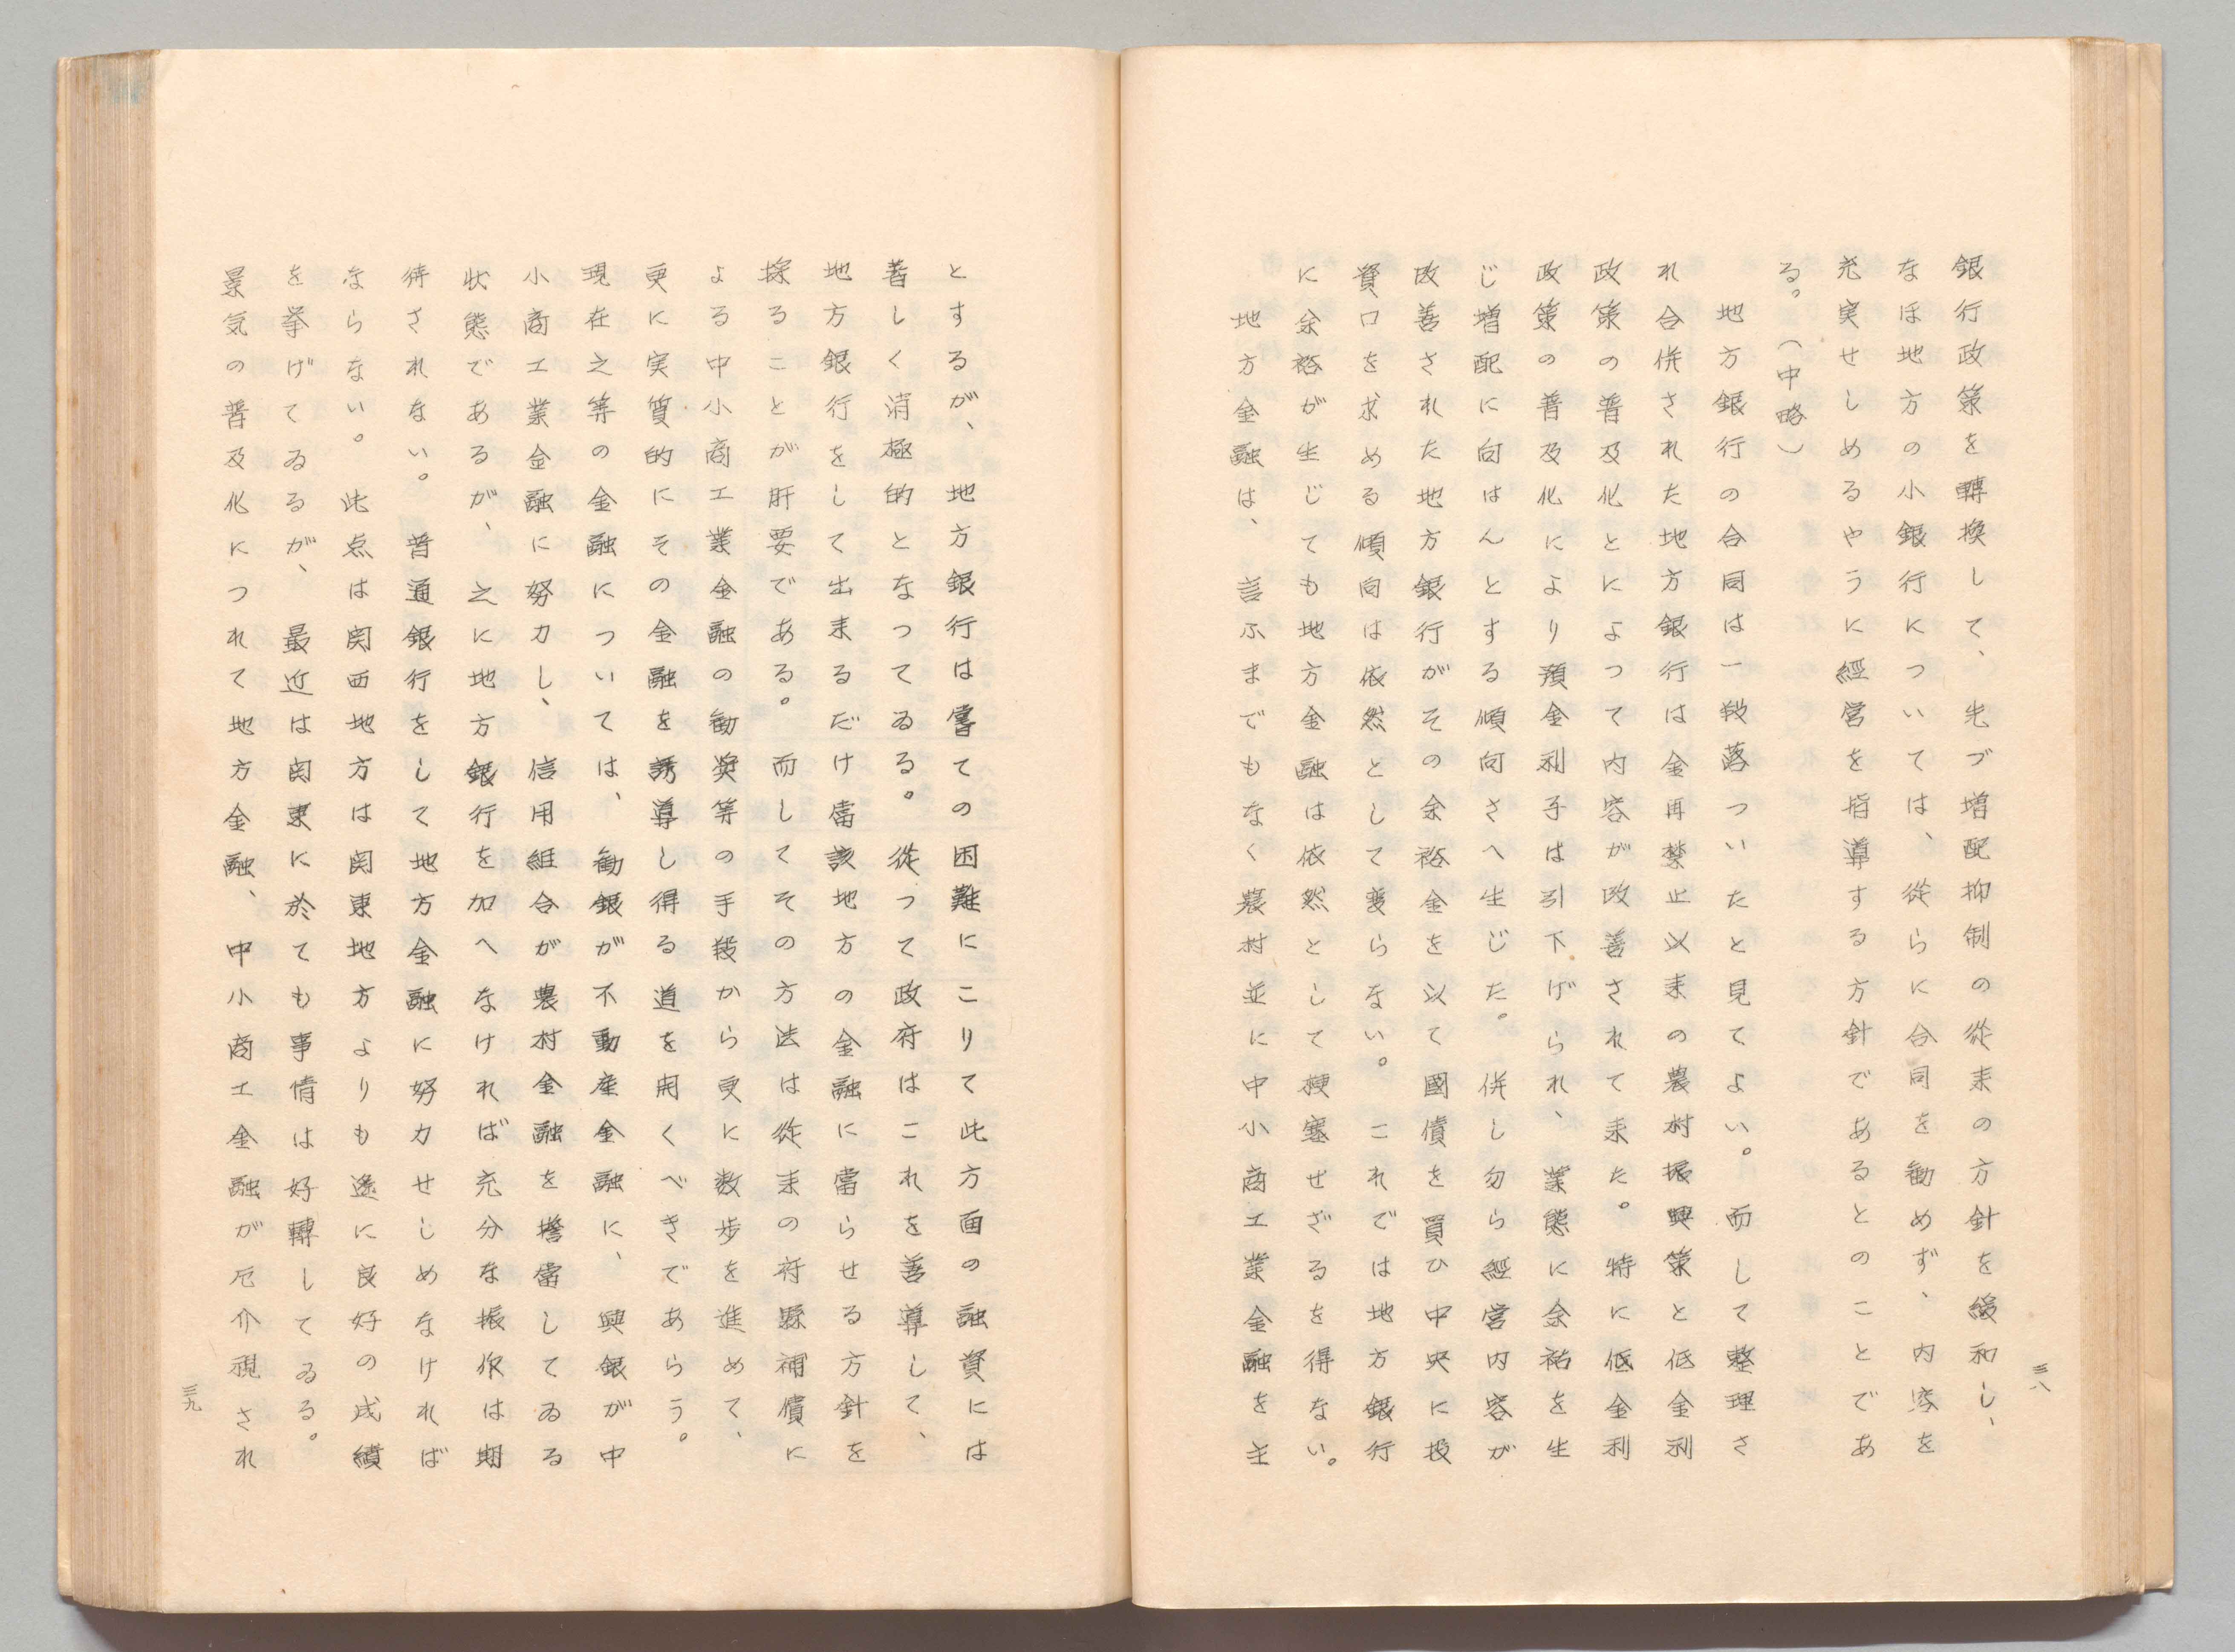 三八
銀行政策を轉換して、先づ増配抑制の從来の方針を緩和し、
なほ地方の小銀行については、從らに合同を勧めず、内容を
充実せしめるやうに經営を指導する方針であるとのことであ
る。(中略)
地方銀行の合同は一段落ついたと見てよい。而して整理さ
れ合併された地方銀行は金再禁止以来の農村振興策と低金利
政策の普及化とによつて内容が改善されて来た。特に低金利
政策の普及化により預金利子は引下げられ、業態に余祐を生
じ増配に向はんとする傾向さへ生じた。併し勿ら經営内容が
改善された地方銀行がその余裕金を以て國債を買ひ中央に投
資口を求める傾向は依然として変らない。これでは地方銀行
に余裕が生じても地方金融は依然として梗塞せざるを得ない。
地方金融は、言ふまでもなく農村並に中小商工業金融を主
とするが、地方銀行は嘗ての困難にこりて此方面の融資には
著しく消極的となつてゐる。從つて政府はこれを善導して、
地方銀行をして出来るだけ當該地方の金融に當らせる方針を
採ることが肝要である。而してその方法は從来の府縣補償に
よる中小商工業金融の勧奨等の手段から更に数歩を進めて、
更に実質的にその金融を誘導し得る道を開くべきであらう。
現在之等の金融については、勧銀が不動産金融に、興銀が中
小商工業金融に努力し、信用組合が農村金融を擔當してゐる
状態であるが、之に地方銀行を加へなければ充分な振作は期
待されない。普通銀行をして地方金融に努力せしめなければ
ならない。此点は関西地方は関東地方よりも遙に良好の成績
を挙げてゐるが、最近は関東に於ても事情は好轉してゐる。
景気の普及化につれて地方金融、中小商工金融が厄介視され
三九